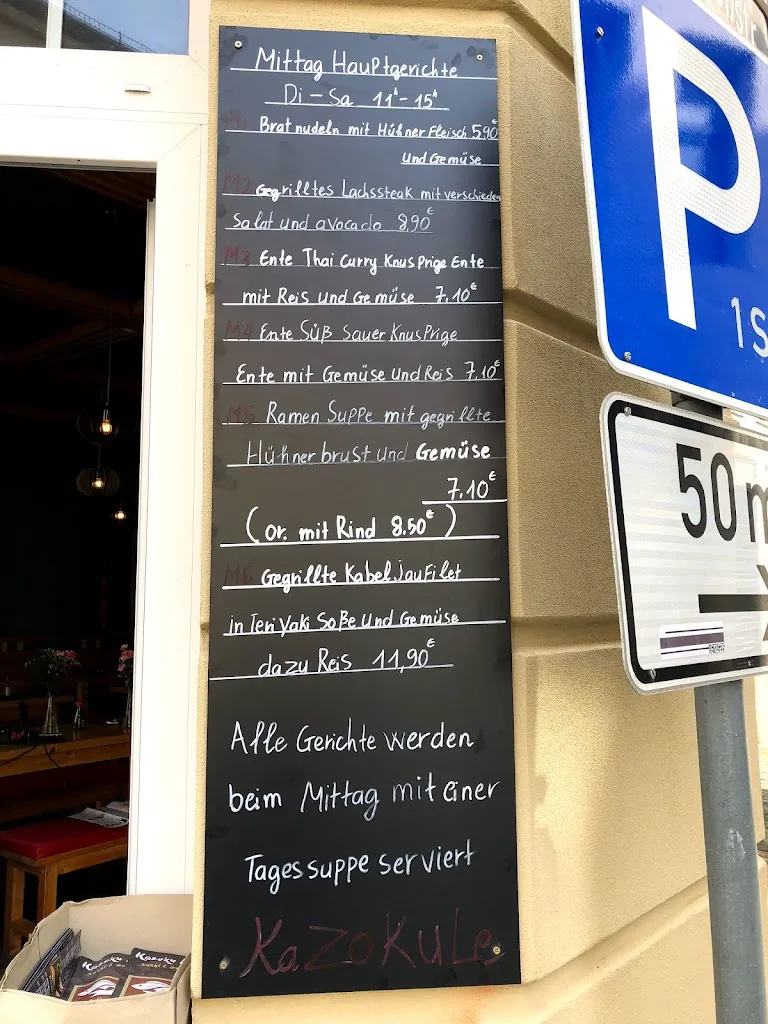 Mittag HauPtgerichte
Di - Sa 11ʰ - 15ʰ
M1 Bratnudeln mit HühnerFleisch 5.90€
und Gemüse
M2 Gegrilltes Lachssteak mit verschieden
Salat und avocado 8,90€
M3 Ente Thai Curry KnusPrige Ente
mit Reis und Gemüse 7.10€
M4 Ente Süß Sauer KnusPrige
Ente mit Gemüse und Reis 7.10€
M5 Ramen Suppe mit gegrillte
Hühnerbrust und Gemüse
7.10€
(or. mit Rind 8.50€)
M6 Gegrillte KabeljauFilet
in TeriYaki Soße und Gemüse
dazu Reis 11,90€
Alle Gerichte werden
beim Mittag mit einer
Tagessuppe serviert
KaZOKULe
P
1 S
50 m
Kazoku
Kazoku